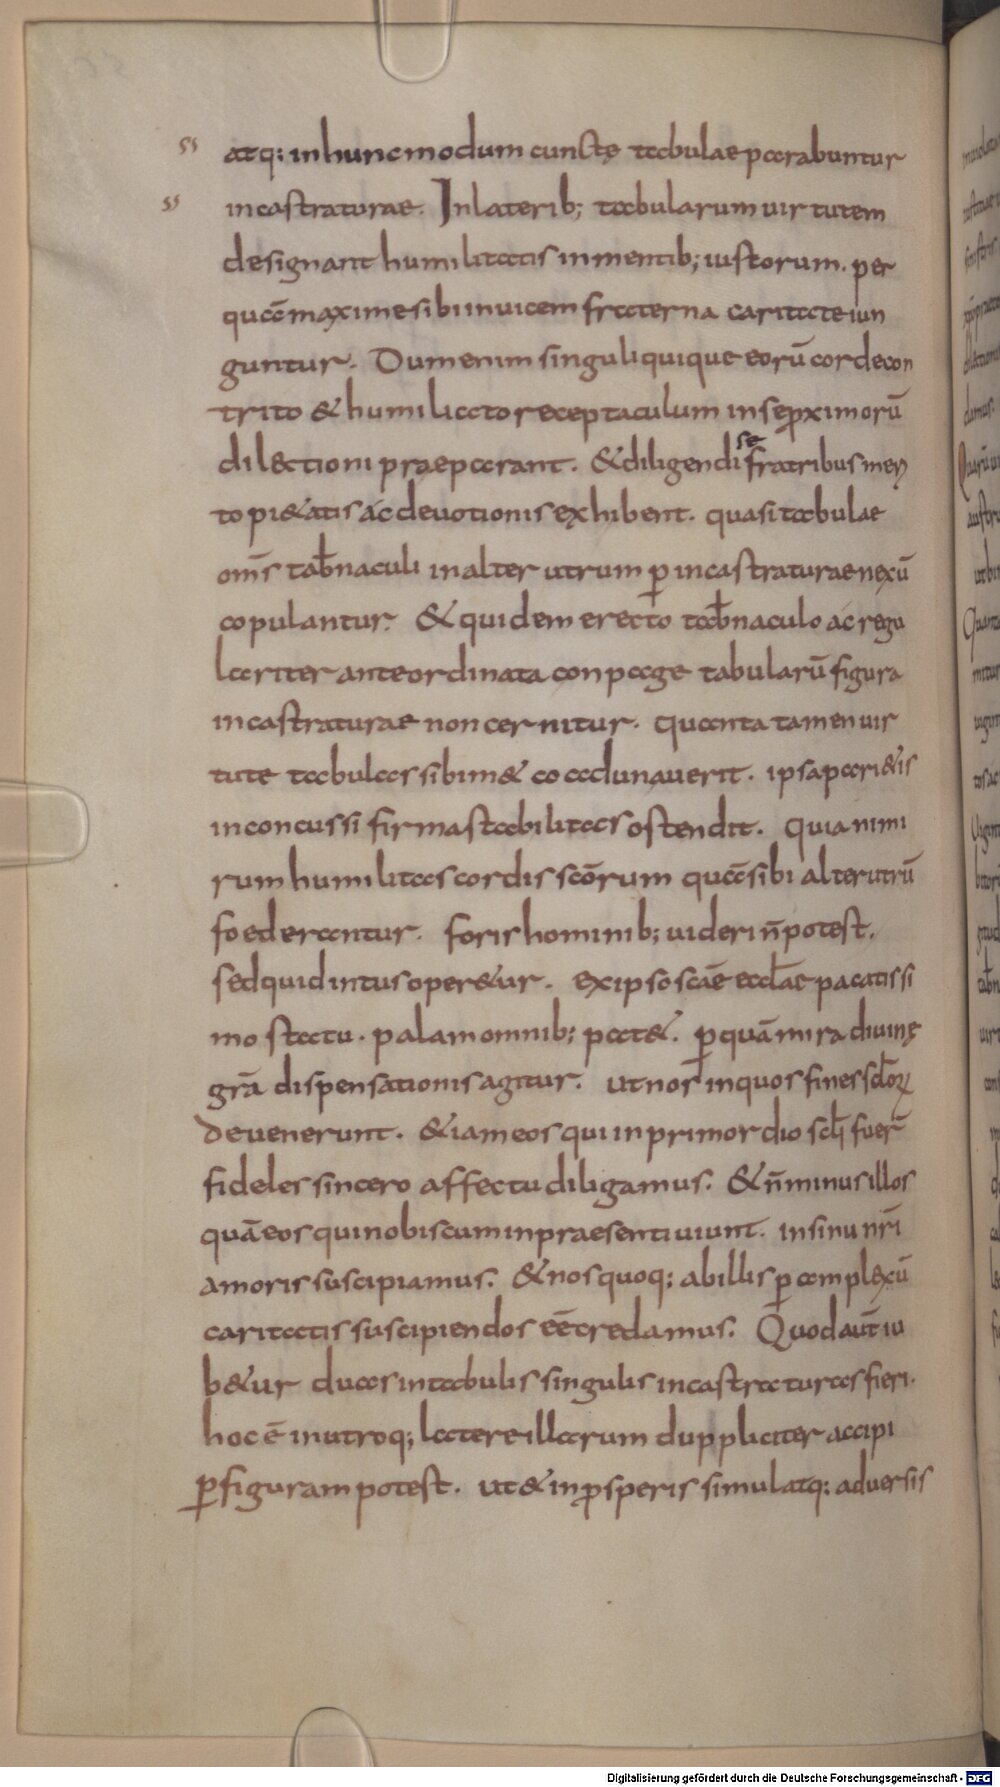 atq; in hunc modum cunctę tabulae parabuntur
incastraturae. In laterib; tabularum uirtutem
designant humilitatis in mentib; iustorum. per
quā maxime sibi inuicem fraterna caritate iun
guntur. Dum enim singuli quique eorū corde con
trito & humiliato receptaculum in se p̱ximorū
dilectioni praeparant. & diligendi se fratribus meri
to pi&atis ac deuotionis exhibent. quasi tabulae
om̄s tab̄naculi in alterutrum ꝑ incastraturae nexū
copulantur. & quidem erecto tab̄naculo ac regu
lariter ante ordinata conpage tabularū figura
incastraturae non cernitur. quanta tamen uir
tute tabulas sibim& coadunauerit. ipsa pari&is
inconcussi firma stabilitas ostendit. quia nimi
rum humilitas cordis scōrum quā sibi alterutrū
foederantur. foris hominib; uideri n̄ potest.
sed quid intus oper&ur. ex ipso scāe eccl̄ae pacatissi
mo statu. palam omnib; pat&. ꝑ quā mira diuinę
grā dispensationis agitur. ut nos in quos fines scl̄oꝝ
deuenerunt. & iam eos qui in primordio scl̄i fuer̄
fideles sincero affectu diligamus. & n̄ minus illos
quā eos qui nobiscum in praesenti uiuunt. in sinu nr̄i
amoris suscipiamus. & nos quoq; ab illis ꝑ complexū
caritatis suscipiendos eē credamus. Quod aut̄ iu
b&ur duas in tabulis singulis incastraturas fieri.
hoc ē in utroq; latere illarum duppliciter accipi
ꝑ figuram potest. ut & in p̱speris simul atq; aduersis
Digitalisierung gefördert durch die Deutsche Forschungsgemeinschaft - DFG